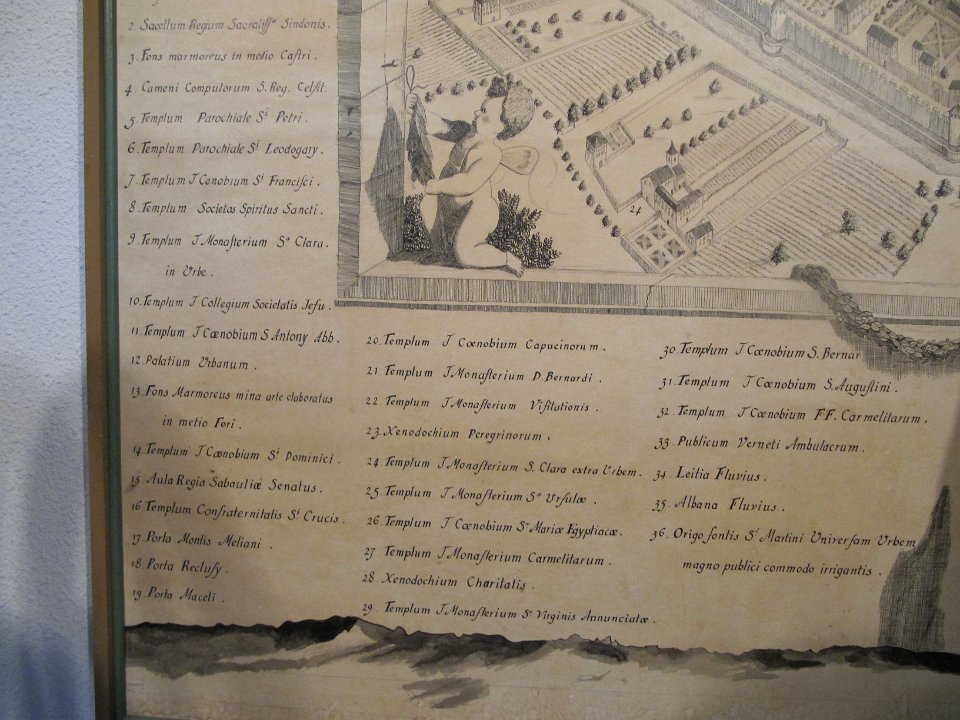 2. Sacellum Regium Sacratiss.æ Sindonis.
3. Fons marmoreus in metio Castri.
4. Cameni Computorum S. Reg. Celsit.
5. Templum Parochiale S.i Petri.
6. Templum Parochiale S.i Leodogary.
7. Templum J Cenobium S.i Francisci.
8. Templum Societas Spiritus Sancti.
9. Templum J Monasterium S.æ Clara.
in Urbe.
10. Templum J Collegium Societatis Jesu.
11. Templum J Cœnobium S Antony Abb.
12. Palatium Urbanum.
13. Fons Marmoreus mina arte claboratus
in metio Fori.
14 Templum J Cœnobium S.i Dominici.
15. Aula Regia Sabaudiæ Senatus.
16 Templum Confraternitatis S.i Crucis.
17. Porta Montis Meliani.
18. Porta Reclusy.
19. Porta Maceti.
20. Templum J Cœnobium Capucinorum.
21. Templum J Monasterium D. Bernardi.
22. Templum J Monasterium Visitationis.
23. Xenodochium Peregrinorum.
24. Templum J Monasterium S. Clara extra Urbem.
25 Templum J Monasterium S.æ Ursulæ.
26 Templum J Cœnobium S.æ Mariæ Egyptiacæ.
27 Templum J Monasterium Carmelitarum.
28 Xenodochium Charitatis.
29. Templum J Monasterium S.æ Virginis Annunciatæ.
30 Templum J Cœnobium S. Bernar
31. Templum J Cœnobium S. Augustini.
32. Templum J Cœnobium FF. Carmelitarum.
33 Publicum Verneti Ambulacrum.
34 Leitia Fluvius.
35. Albana Fluvius.
36. Origo fontis S.i Martini Universam Urbem
magno publici commodo irrigantis.
24